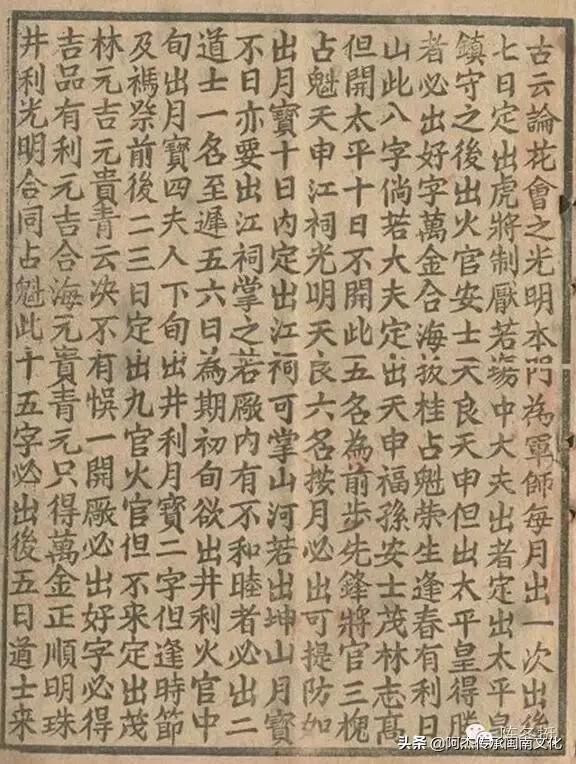 古云論花會之光明本門為軍師每月出一次出後
七日定出虎將制厭若場中大夫出者定出太平皇
鎮守之後出火官安士天良天申但出太平皇得勝
者必出好字萬金合海拔桂占魁榮生逢春有利日
山此八字倘若大夫定出天申福孫安士茂林志高
但開太平十日不開此五名為前步先鋒將官三槐
占魁天申江祠光明天良六名按月必出可提防如
出月寶十日內定出江祠可掌山河若出坤山月寶
不日亦要出江祠掌之若厰內有不和睦者必出二
道士一名至遲五六日為期初旬欲出井利火官中
旬出月寶四夫人下旬出井利月寶二字但逢時節
及禡祭前後二三日定出九官火官但不来定出茂
林元吉元貴青云决不有悞一開厰必出好字必得
吉品有利元吉合海元貴青元只得萬金正順明珠
井利光明合同占魁此十五字必出後五日道士来
头条 @阿杰传承闽南文化